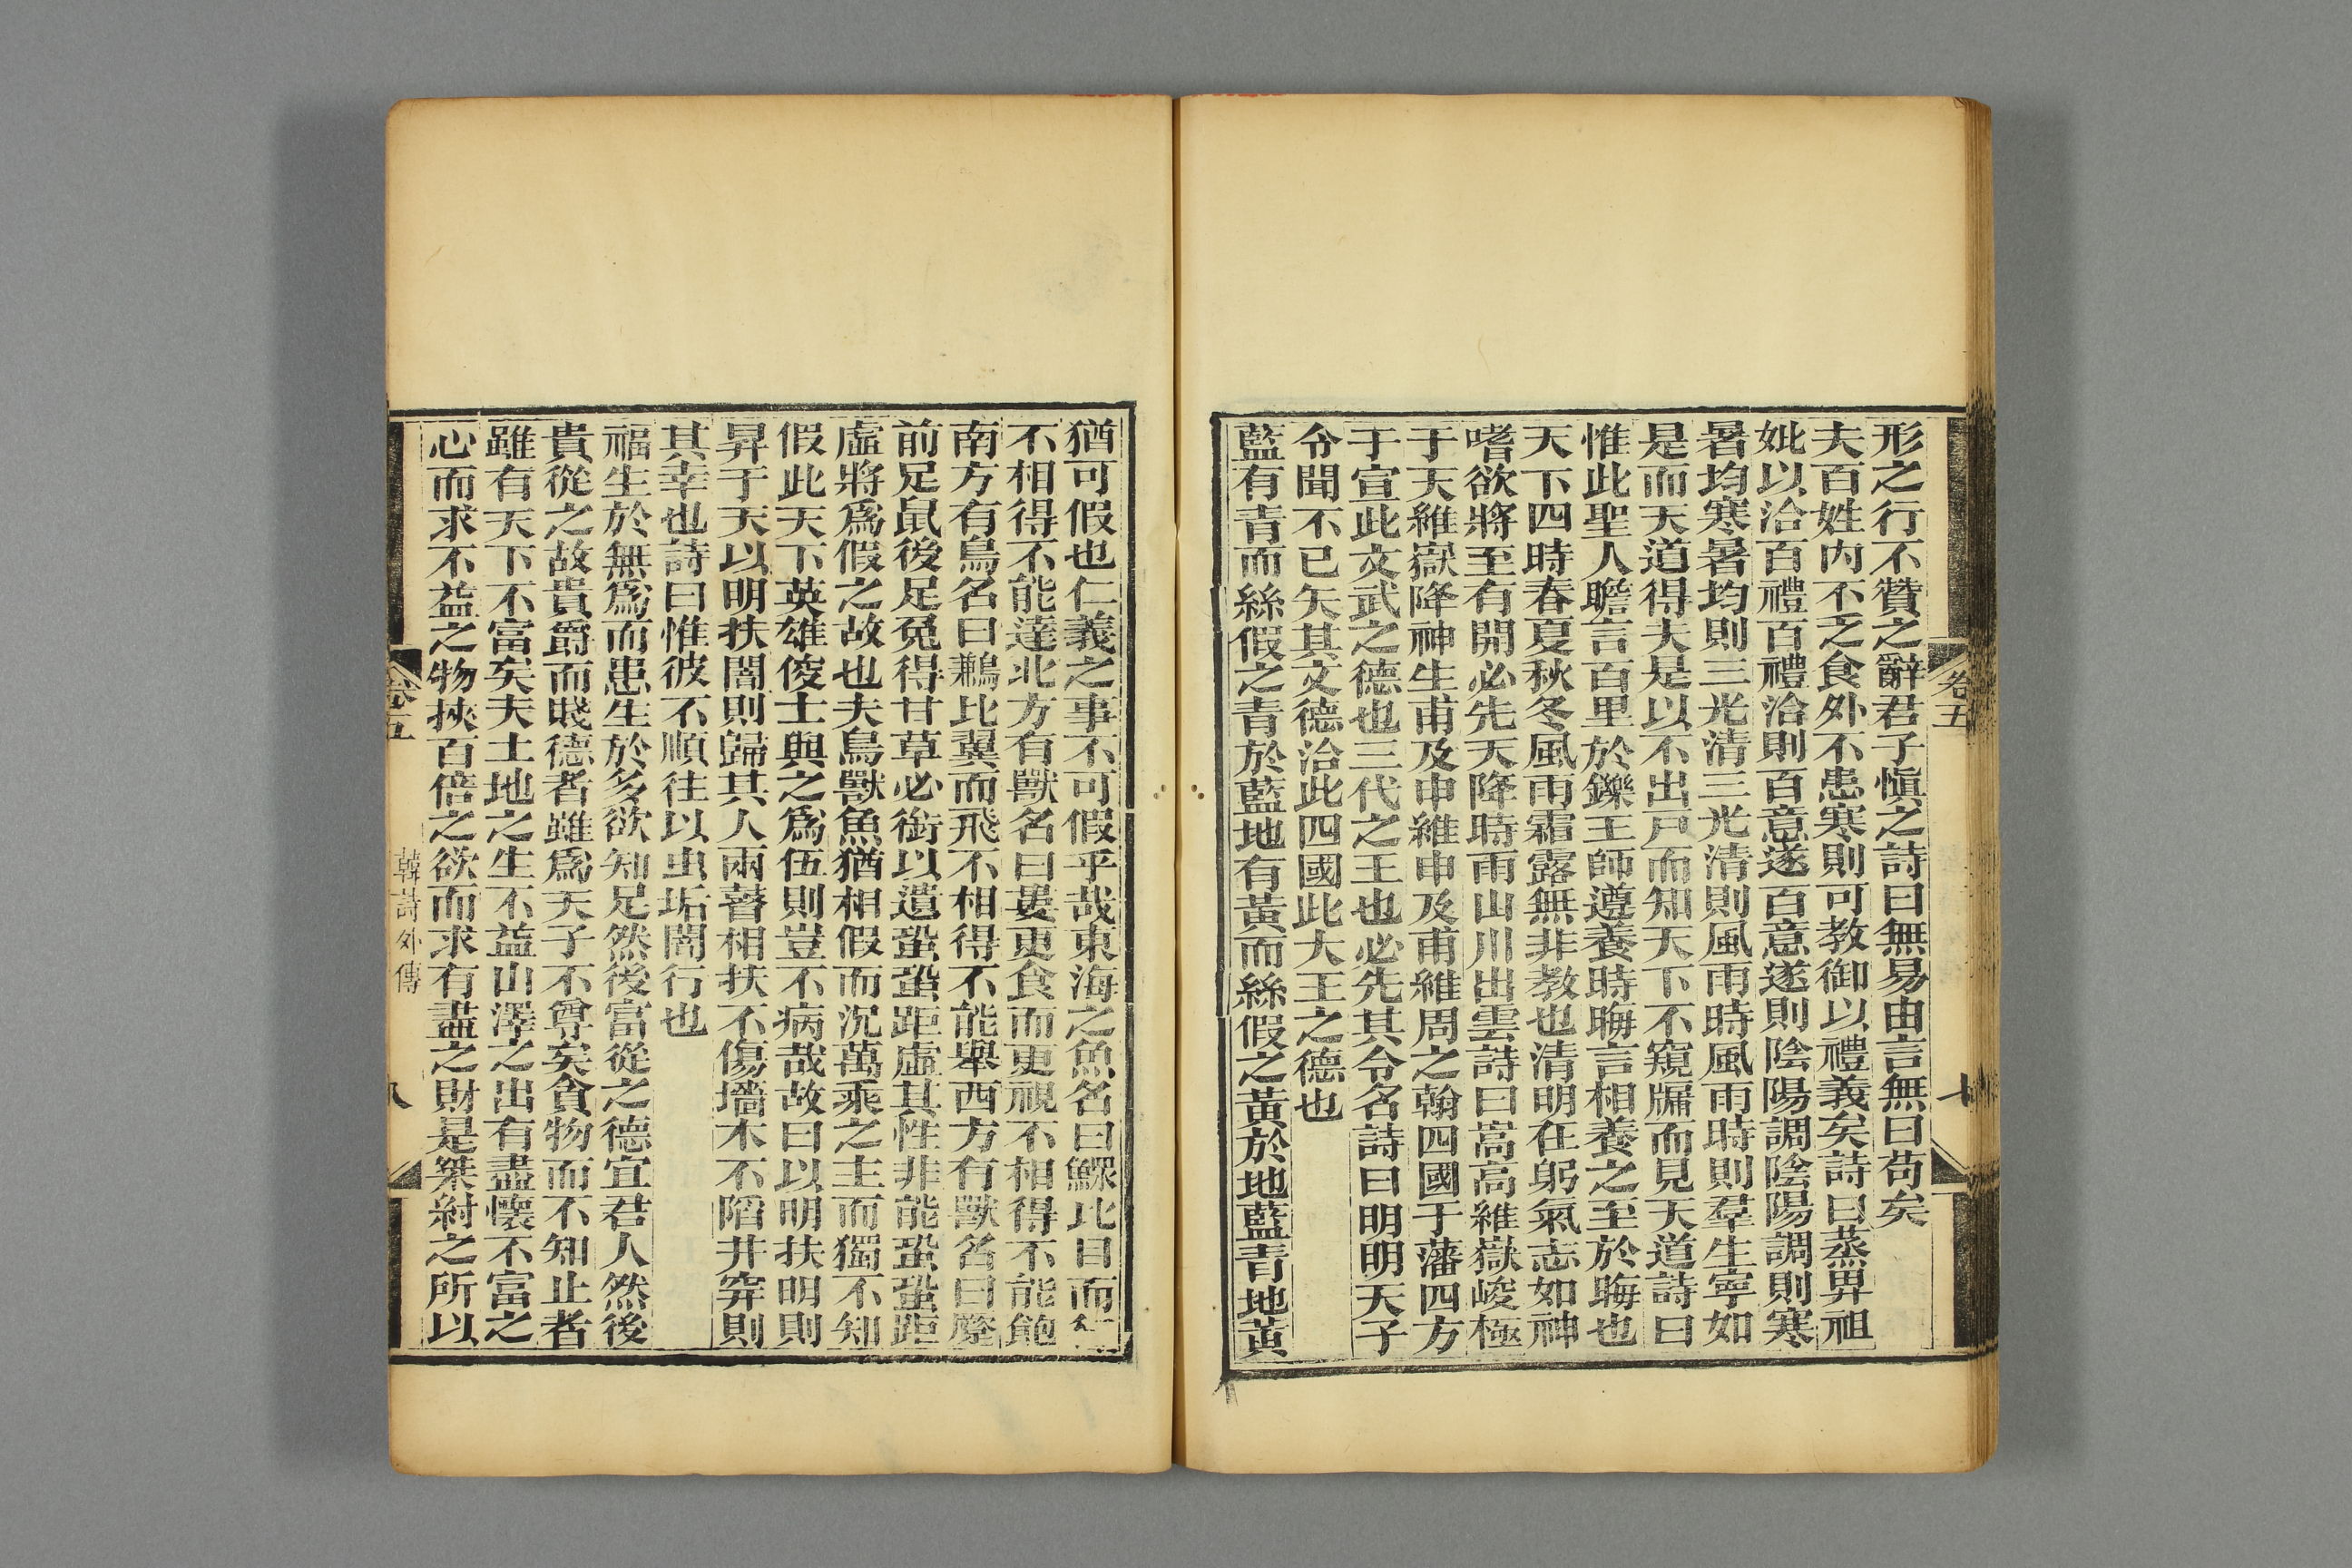 形之行不贊之辭君子愼之詩曰無易由言無曰苟矣
夫百姓內不乏食外不患寒則可教御以禮義矣詩曰蒸畀祖
妣以洽百禮百禮洽則百意遂百意遂則陰陽調陰陽調則寒
暑均寒暑均則三光清三光清則風雨時風雨時則羣生寧如
是而天道得矣是以不出戸而知天下不窺牖而見天道詩曰
惟此聖人瞻言百里於鑠王師遵養時晦言相養之至於晦也
天下四時春夏秋冬風雨霜露無非教也清明在躬氣志如神
嗜欲將至有開必先天降時雨山川出雲詩曰嵩高維嶽峻極
于天維嶽降神生甫及申維申及甫維周之翰四國于藩四方
于宣此文武之德也三代之王也必先其令名詩曰明明天子
令聞不已矢其文德洽此四國此大王之德也
藍有青而絲假之青於藍地有黃而絲假之黃於地藍青地黃
猶可假也仁義之事不可假乎哉東海之魚名曰鰈比目而行
不相得不能達北方有獸名曰婁更食而更視不相得不能飽
南方有鳥名曰鶼比翼而飛不相得不能舉西方有獸名曰蟨
前足鼠後足兔得甘草必銜以遺蛩蛩距虛其性非能蛩蛩距
虛將爲假之故也夫鳥獸魚猶相假而況萬乘之主而獨不知
假此天下英雄俊士與之爲伍則豈不病哉故曰以明扶明則
昇于天以明扶闇則歸其人兩瞽相扶不傷墻木不陷井穽則
其幸也詩曰惟彼不順往以虫垢闇行也
福生於無爲而患生於多欲知足然後富從之德宜君人然後
貴從之故貴爵而賤德者雖爲天子不尊矣貪物而不知止者
雖有天下不富矣夫土地之生不益山澤之出有盡懷不富之
心而求不益之物挾百倍之欲而求有盡之財是桀紂之所以
卷五
韓詩外傳
八